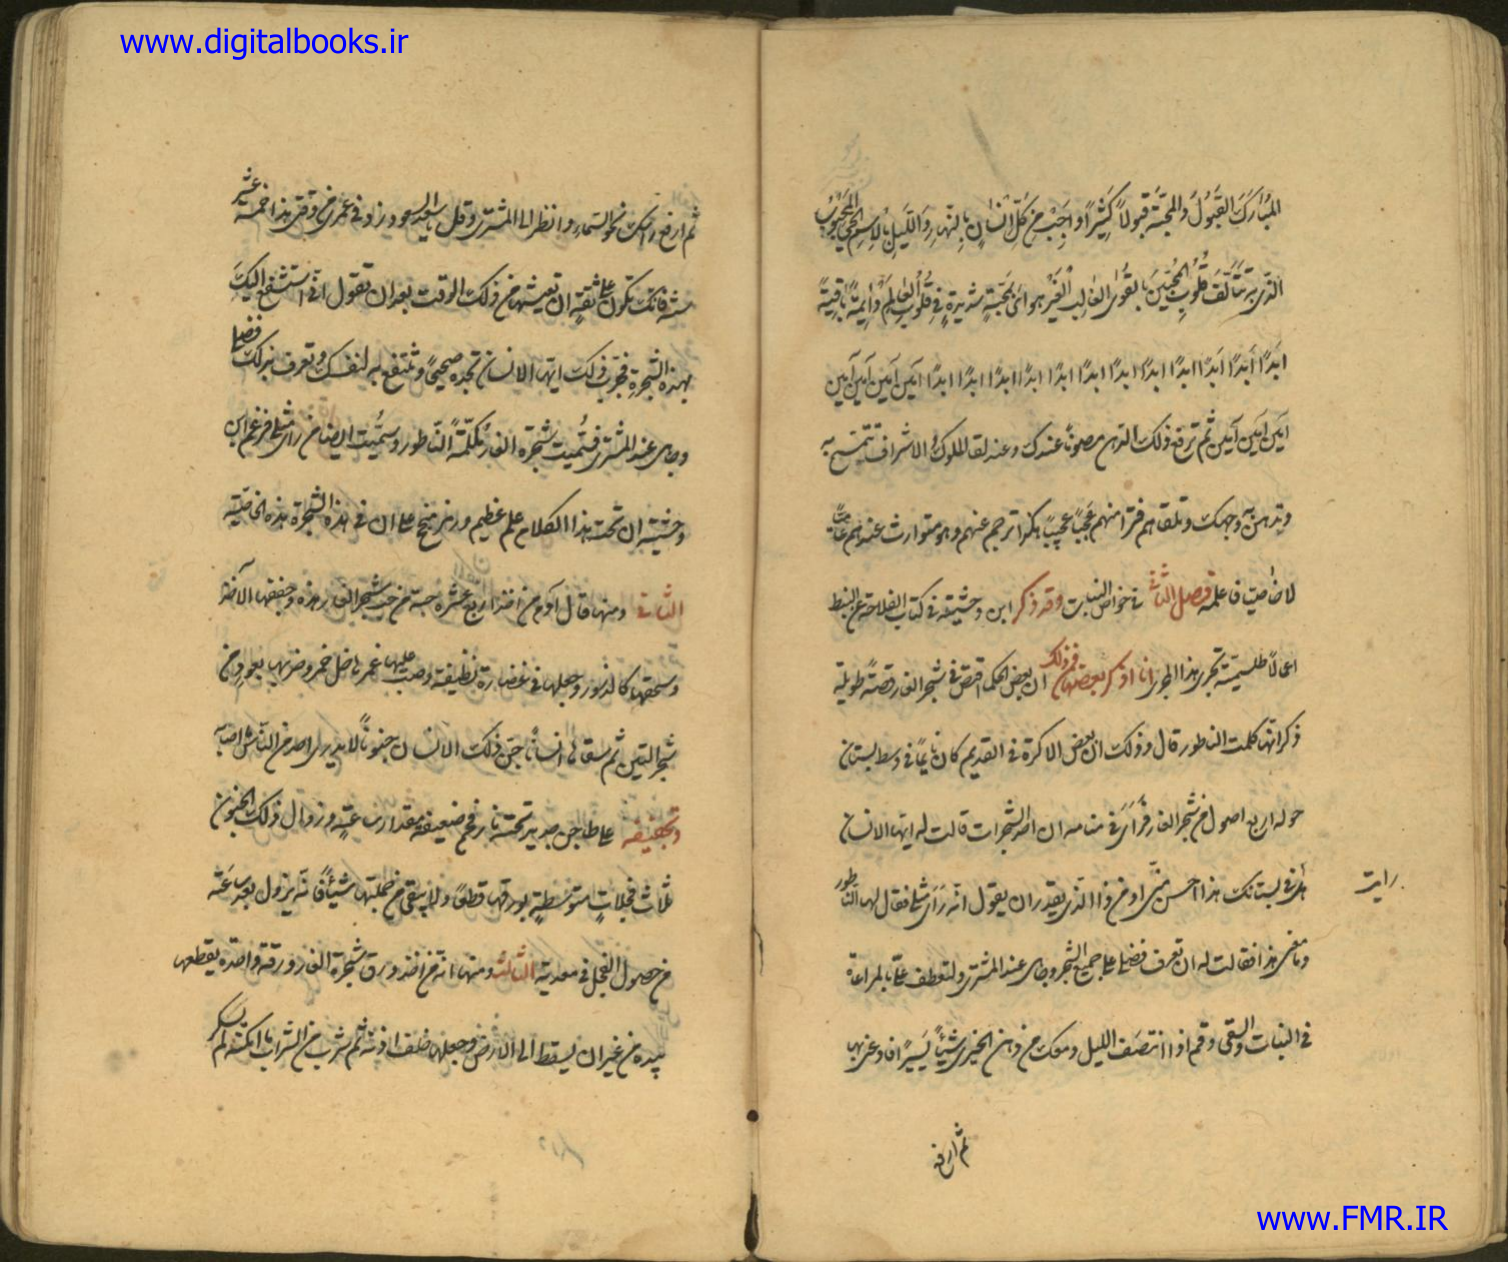 www.digitalbooks.ir
المبارك القبول والمحبة قبولاً كثيراً واجب من كل انسان بالنهار والليل بالاسم الحي المحبوب
الذي به تتألف قلوب المحبين بالقوى الغالب الغير هوائ محبة شديدة في قلوب العالم دايمة باقية
ابدًا ابدًا ابدًا ابدًا ابدًا ابدًا ابدًا ابدًا ابدًا ابدًا ابدًا آمين آمين آمين آمين آمين
آمين آمين آمين ثم ترفع ذلك الدهن مصوناً عندك وعند لقا الملوك والاشراف تتمسح به
وتدهن به وجهك وتلقاهم فترا منهم عجباً عجيباً هكذا ترجم عنهم وهو متوارث عندهم
فاعلمه فصل الثالث في خواص النبات وقد ذكر ابن وحشية في كتاب الفلاحة عن النبط
اعمالاً طلسمية تجرى هذا المجرى انا اذكر بعضها فمن ذلك ان بعض الحكما اقتص في شجر الغار قصة طويلة
ذكر انها كلمت الناطور قال وذلك ان بعض الاكرة في القديم كان نايماً في وسط بستان
حوله اربع اصول من شجر الغار فرأى في منامه ان احد الشجرات قالت له ايها الانسان
رايت
هل في بستانك هذا احسن منى او من ذا الذي يقدر ان يقول انه رأى مثلي فقال لها الناطور
وما معنى هذا فقالت له ان تعرف فضلى على جميع الشجر وجاهى عند المشترى ولتعطف علىّ بالمراعاة
في النبات والسقى وقم اذا انتصف الليل ومعك من دهن الخيرى شيئاً يسيراً
ثم ارفع
ثم ارفع راسك نحو السماء وانظر الى المشترى وقل يا سعيد السعود زد في عمرى من وقتى هذا خمسة عشر
سنة فانك تكون على ثقة ان تعيشها من ذلك الوقت بعد ان تقول انى استشفع اليك
بهذه الشجرة فجرب ذلك ايها الانسان تجده صحيحاً وتنتفع به لنفسك وتعرف بذلك فضلى
وجاهى عند المشترى فسُميت شجرة الغار مكلّمة الناطور وسميت ايضا من رأى مثلى فزعم ابن
وحشية ان تحت هذا الكلام علم عظيم ورمز على ان في هذه الشجرة هذه الخاصية
الثانى ومنها قال آدم من اخذ اربع عشرة حبة من حب شجر الغار هذه وجففها
وسحقها كالذرور وجعلها في غضارة نظيفة وصب عليها غمرها خل خمر وضربها بعود من
شجر التين ثم سقاها انسانًا جن ذلك الانسان جنوناً لا يدرى احد من الناس اصابه
وتجفيفه على طابق حديد تحته نار فحم ضعيفة مقدار ساعة وزوال ذلك الجنون
ثلاث فجلات متوسطة بورقها قطعًا ولا يبقى من جملتها شيئًا فانه يزول بعد ساعة
من حصول الفجل في معدته الثالثه ومنها انه من اخذ ورق شجرة الغار ورقة واحدة يقطعها
بيده من غير ان يسقط الى الارض وجعلها خلف اذنه ثم شرب من الشراب ما امكنه لم يسكر
www.FMR.IR